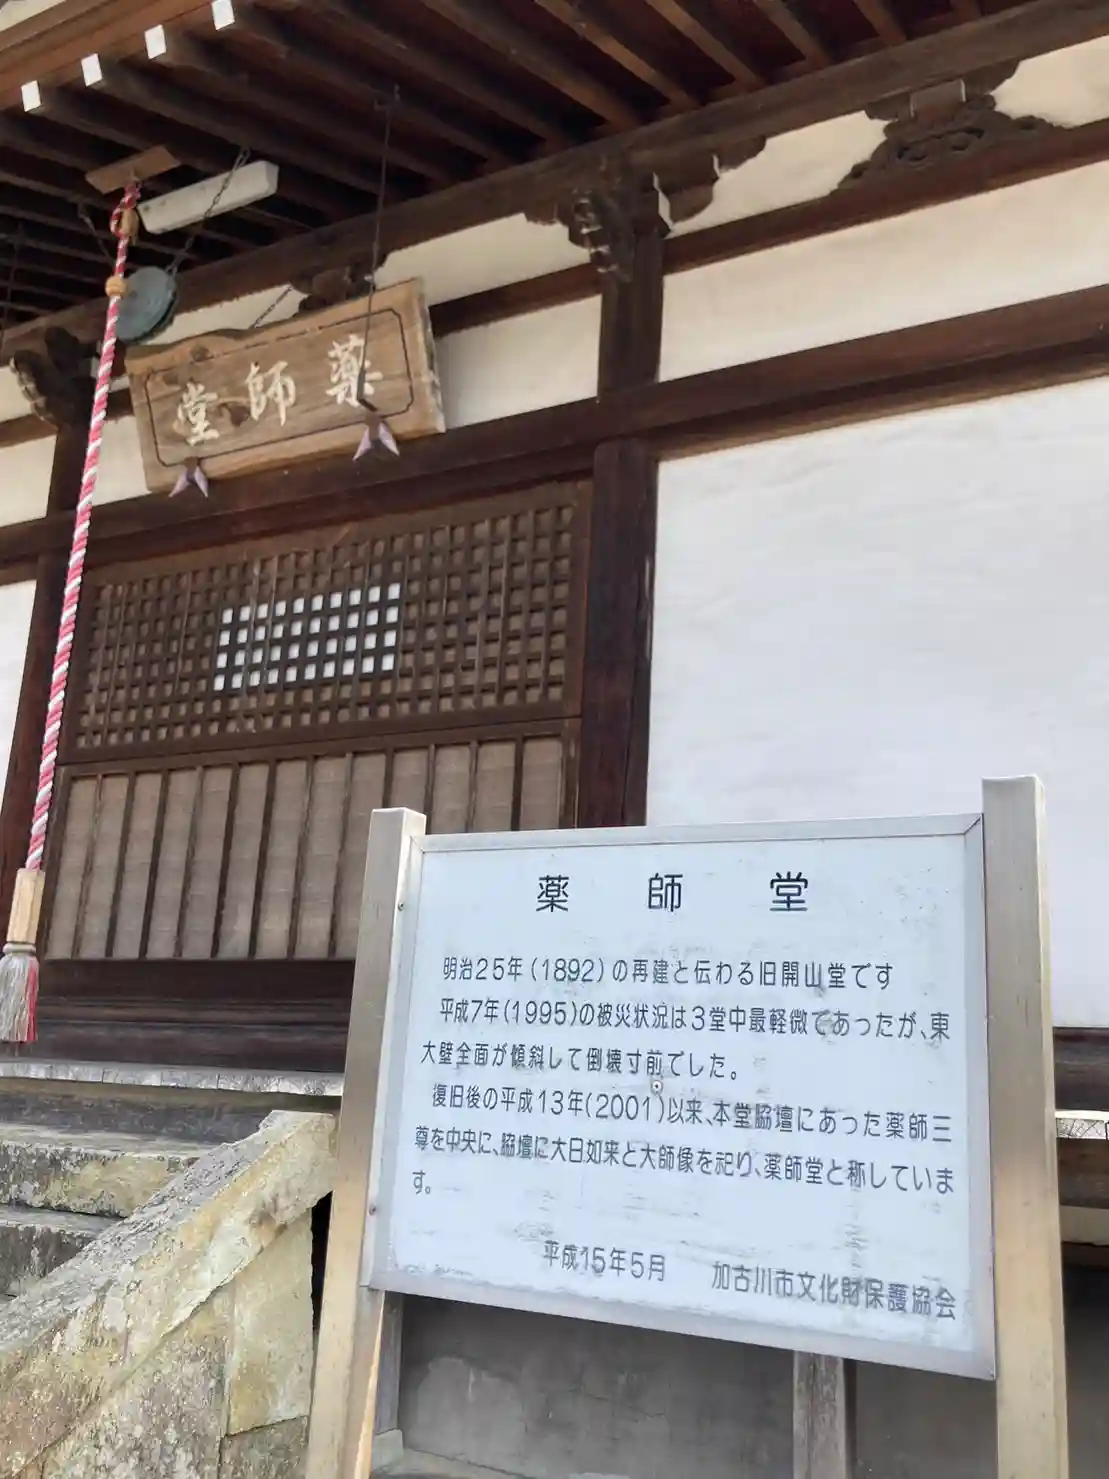 薬師堂
薬師堂
明治25年(1892)の再建と伝わる旧開山堂です
平成7年(1995)の被災状況は3堂中最軽微であったが、東
大壁全面が傾斜して倒壊寸前でした。
復旧後の平成13年(2001)以来、本堂脇壇にあった薬師三
尊を中央に、脇壇に大日如来と大師像を祀り、薬師堂と称していま
す。
平成15年5月 加古川市文化財保護協会